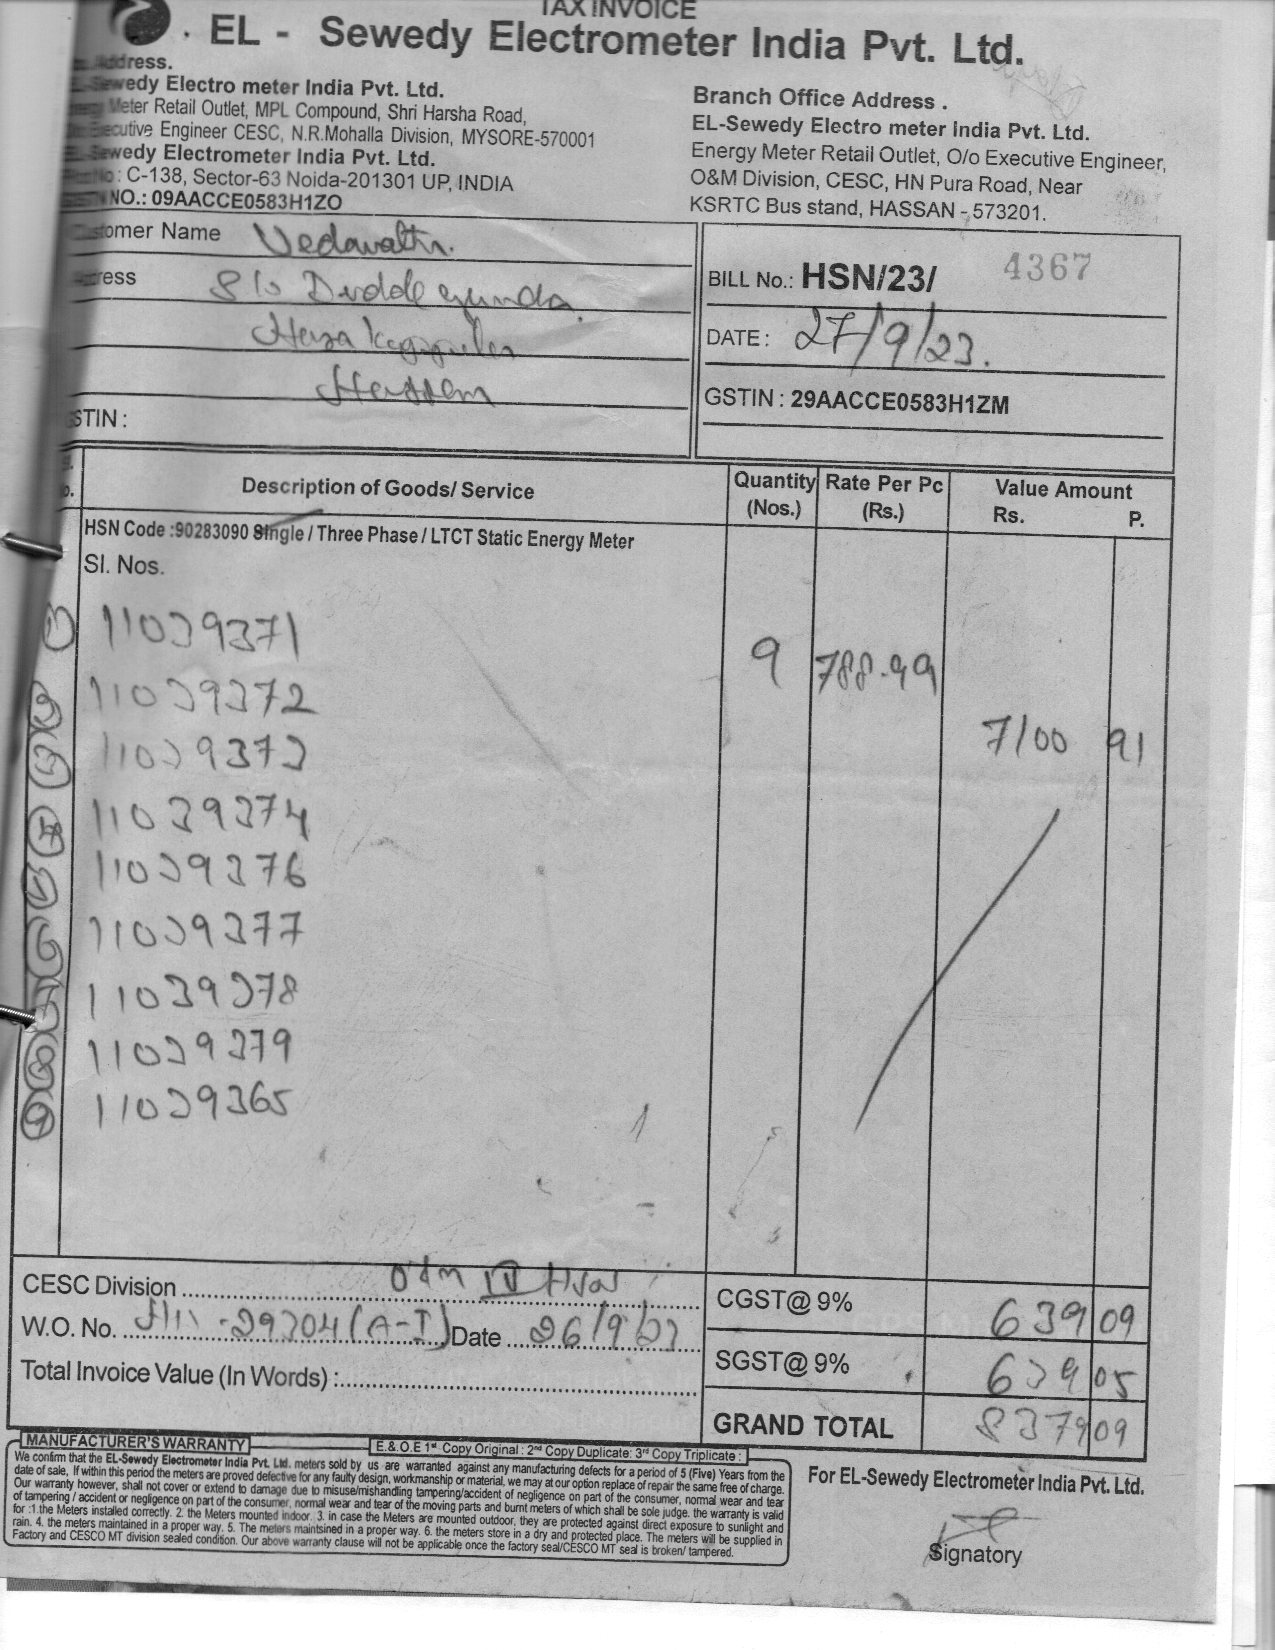 TAX INVOICE
EL - Sewedy Electrometer India Pvt. Ltd.
Address.
Sewedy Electro meter India Pvt. Ltd.
Meter Retail Outlet, MPL Compound, Shri Harsha Road,
Executive Engineer CESC, N.R.Mohalla Division, MYSORE-570001
EL-Sewedy Electrometer India Pvt. Ltd.
: C-138, Sector-63 Noida-201301 UP, INDIA
NO.: 09AACCE0583H1ZO
Branch Office Address .
EL-Sewedy Electro meter India Pvt. Ltd.
Energy Meter Retail Outlet, O/o Executive Engineer,
O&M Division, CESC, HN Pura Road, Near
KSRTC Bus stand, HASSAN - 573201.
Customer Name Vedavathi.
Address S/o
Hassan
GSTIN :
BILL No.: HSN/23/ 4367
DATE : 27/9/23.
GSTIN : 29AACCE0583H1ZM
Description of Goods/ Service
Quantity (Nos.)
Rate Per Pc (Rs.)
Value Amount
Rs. P.
HSN Code :90283090 Single / Three Phase / LTCT Static Energy Meter
Sl. Nos.
1) 11039371
9 788.99
2 11039372
7100 91
3 11039373
4 11039374
5 11039376
6 11039377
7 11039378
8 11039379
9 11039365
CESC Division O&M Hsn
W.O. No. -29304 (A-I) Date 26/9/23
Total Invoice Value (In Words) :
CGST@ 9% 639 09
SGST@ 9% 639 05
GRAND TOTAL 8379 09
MANUFACTURER'S WARRANTY
E.& O.E 1st Copy Original : 2nd Copy Duplicate: 3rd Copy Triplicate :
We confirm that the EL-Sewedy Electrometer India Pvt. Ltd. meters sold by us are warranted against any manufacturing defects for a period of 5 (Five) Years from the
date of sale, If within this period the meters are proved defective for any faulty design, workmanship or material, we may at our option replace of repair the same free of charge.
Our warranty however, shall not cover or extend to damage due to misuse/mishandling tampering/accident of negligence on part of the consumer, normal wear and tear
of tampering / accident or negligence on part of the consumer, normal wear and tear of the moving parts and burnt meters of which shall be sole judge. the warranty is valid
for :1.the Meters installed correctly. 2. the Meters mounted indoor. 3. in case the Meters are mounted outdoor, they are protected against direct exposure to sunlight and
rain. 4. the meters maintained in a proper way. 5. The meters maintsined in a proper way. 6. the meters store in a dry and protected place. The meters will be supplied in
Factory and CESCO MT division sealed condition. Our above warranty clause will not be applicable once the factory seal/CESCO MT seal is broken/ tampered.
For EL-Sewedy Electrometer India Pvt. Ltd.
Signatory